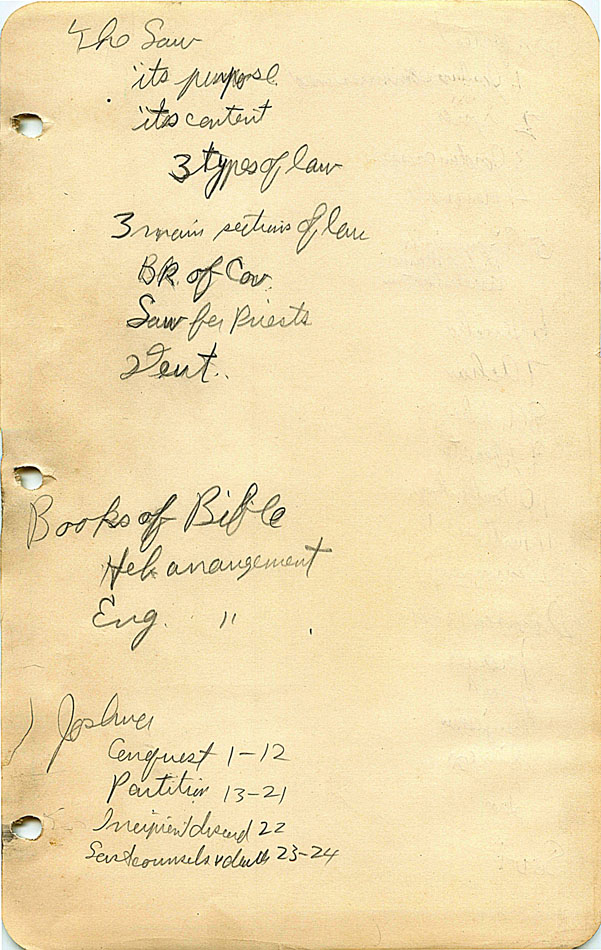 The Law
its purpose
its content
3 types of law
3 main sections of law
BK. of Cov.
Law for Priests
Deut.
Books of Bible
Heb. arrangement
Eng. "
Joshua
Conquest 1-12
Partition 13-21
Incipient discord 22
Last counsels & death 23-24